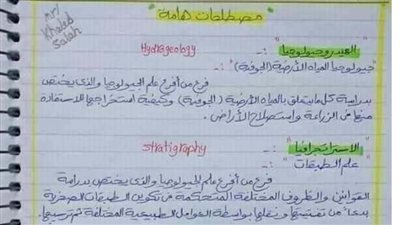 Mr/
Khaled
Salah
مصطلحات هامة
الهيدروجيولوجيا Hydrogeology :-
جيولوجيا المياه الأرضية (الجوفية) :-
فرع من أفرع علم الجيولوجيا والذي يختص
بدراسة كل ما يتعلق بالمياه الأرضية (الجوفية) وكيفية استخراجها للاستفادة
منها في الزراعة واستصلاح الأراضي .
الاستراتجرافيا stratigraphy :-
علم الطبقات
فرع من أفرع علم الجيولوجيا والذي يختص بدراسة
القوانين والظروف المختلفة المتحكمة في تكوين الطبقات الصخرية
بدءاً من تفتيتها ونقلها بواسطة العوامل الطبيعية المختلفة ثم ترسيبها.